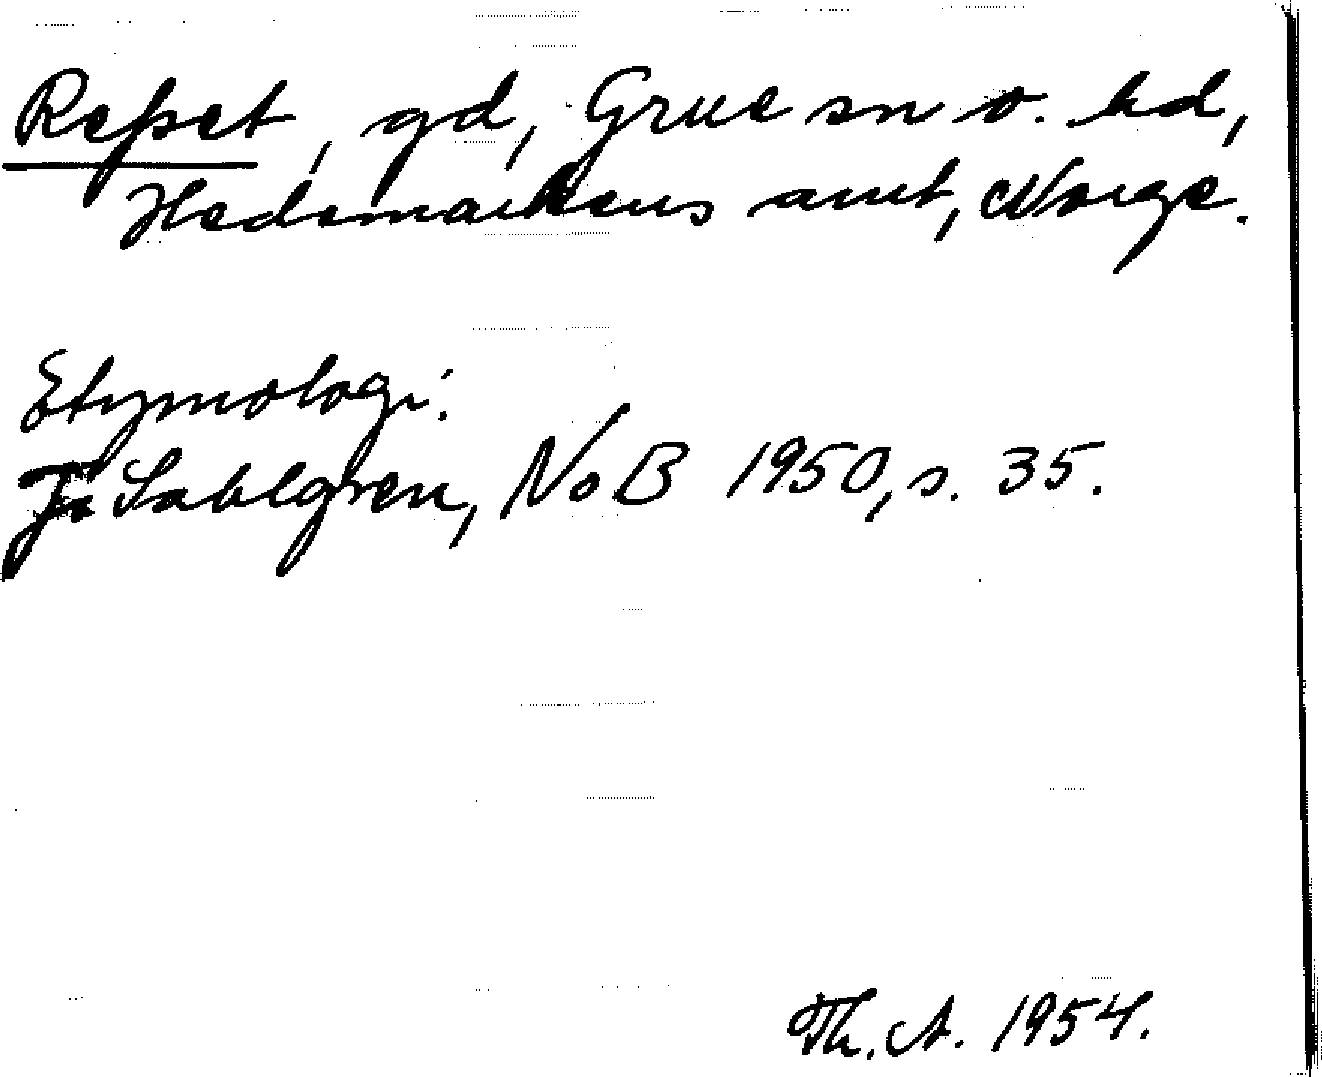 Repset, gd, Grue sn o. hd,
Hedemarkens amt, Norge.
Etymologi:
J. Sahlgren, NoB 1950, s. 35.
Th. A. 1954.